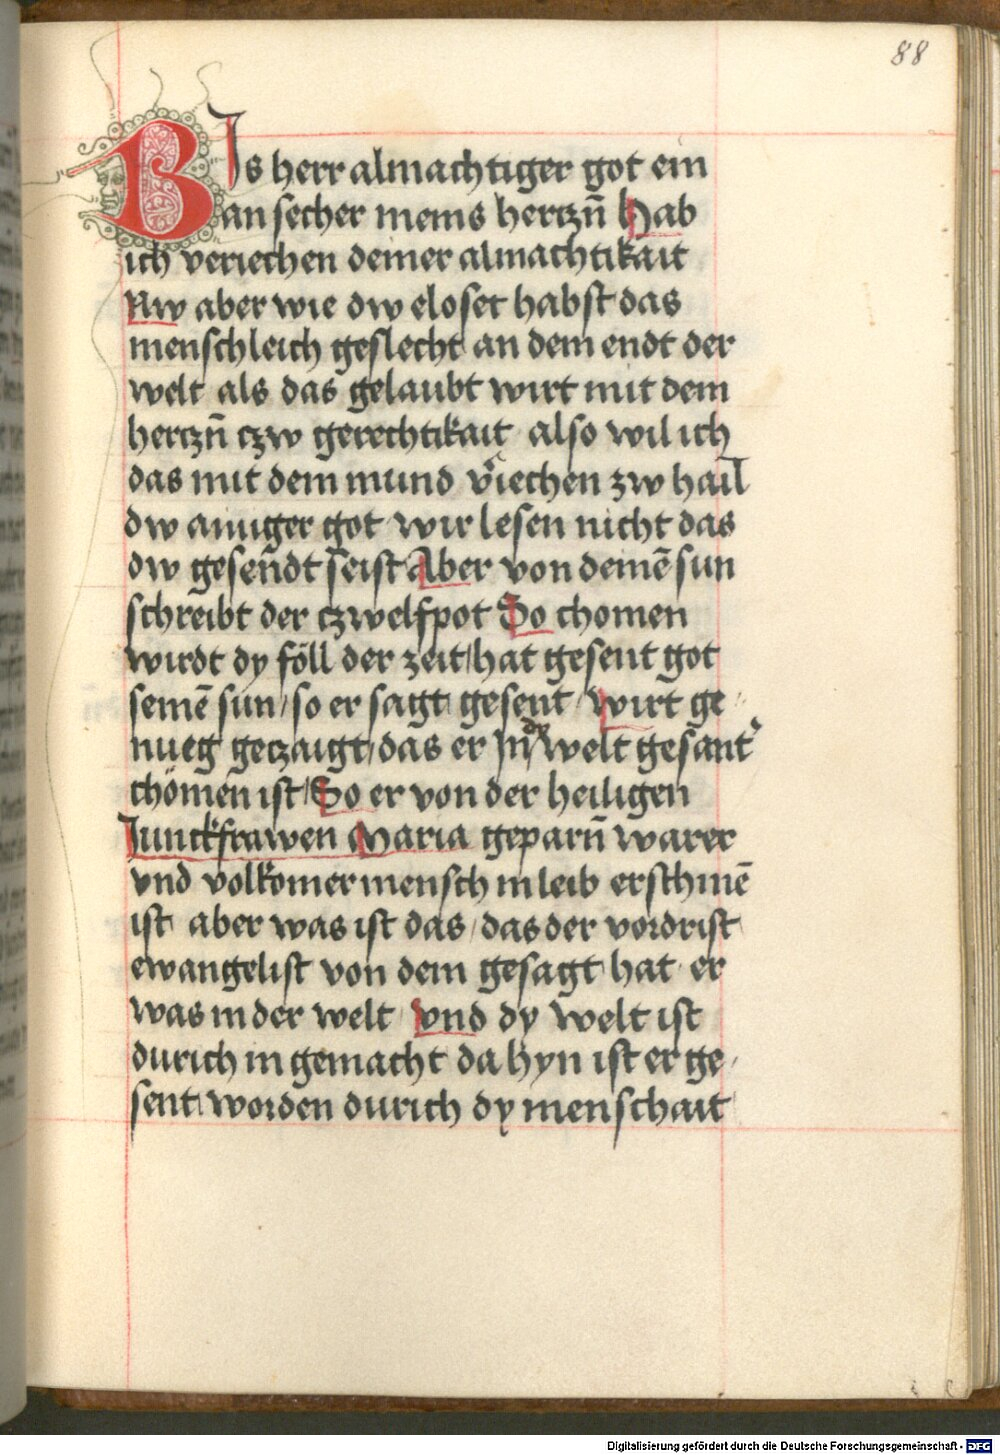 88
BIs herr almachtiger got ein
an secher meins hertzn̄ Hab
ich veriechen deiner almachtikait
Nw aber wie dw eloset habst das
menschleich geslecht an dem endt der
welt als das gelaubt wirt mit dem
hertzn̄ czw gerechtikait also wil ich
das mit dem mund v̾iechen zw hail
dw ainiger got wir lesen nicht das
dw gesen̄dt seist Aber von deinē sun
schreibt der czwelfpot So chomen
wirdt dy föll der zeit / hat gesent got
seinē sun / so er sagt gesent / wirt ge /
nueg geczaigt / das er Jn der welt gesant
chömen ist / So er von der heiligen
Junckfrawen Maria geparn̄ warer
vnd volkomer mensch in leib erschinē
ist aber was ist das / das der vordrist
ewangelist von dem gesagt hat er
was in der welt vnd dy welt ist
durich in gemacht da hyn ist er ge /
sent worden durich dy menschait
Digitalisierung gefördert durch die Deutsche Forschungsgemeinschaft - DFG